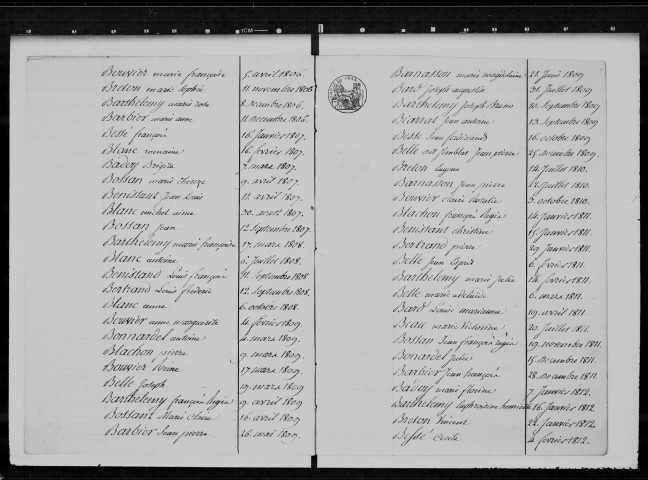 Bouvier marie françoise 5 avril 1806.
Breton marie Sophie 11 novembre 1806
Barthelemy marie rose 8 Decembre 1806.
Barbier marie anne 11 Decembre 1806.
Bessé françois 16 Janvier 1807.
Blanc romaine 16 fevrier 1807.
Badoy Brigite 7 mars 1807.
Bossan marie Therèze 9 avril 1807.
Benistant Jean Louis 11 avril 1807.
Blanc michel aimé 30 aout 1807.
Bossan Jean 12 Septembre 1807.
Barthelemy marie françoise 17 mars 1808.
Blanc antoine 6 Juillet 1808.
Benistand Louis françois 11 Septembre 1808
Bertrand Louis frederic 12 Septembre 1808.
Blanc anne 6 octobre 1808.
Bouvier anne marguerite 4 fevrier 1809.
Bonnardel antoine 4 mars 1809.
Blachon pierre 9 mars 1809.
Bouvier 17 mars 1809.
Belle Joseph 19 mars 1809
Barthelemy françois Regis 9 avril 1809
Bossant Marie Claire 16 avril 1809
Barbier Jean pierre 26 mai 1809.
Barnasson marie magdelaine 21 Juin 1809
Bard Joseph augustin 31 Juillet 1809
Barthelemy Joseph Bruno 10 Septembre 1809
Biarrat Jean antoine 13 Septembre 1809
Besse Jean ferdinand 16 octobre 1809
Belle Jean pierre 25 novembre 1809.
Breton Eugene 14 Juillet 1810.
Barnasson Jean pierre 22 Juillet 1810
Bouvier Claire 3 octobre 1810.
Blachon françois Regis 14 Janvier 1811.
Benistant christine 15 Janvier 1811.
Bertrand pierre 29 Janvier 1811.
Belle Jean Esprit 6 fevrier 1811.
Barthelemy marie Julie 14 fevrier 1811.
Belle marie adelaide 6 mars 1811.
Bard Louis 19 avril 1811
Beau marie Victoire 20 Juillet 1811.
Bossan Jean françois Regis 19 novembre 1811.
Bonardel Julie 15 Decembre 1811.
Barbier Jean françois 28 Decembre 1811.
Badoy marie florine 7 Janvier 1812.
Barthelemy Euphrosine 16 Janvier 1812.
Breton Vincent 22 Janvier 1812.
Bessé Cecile 4 fevrier 1812.